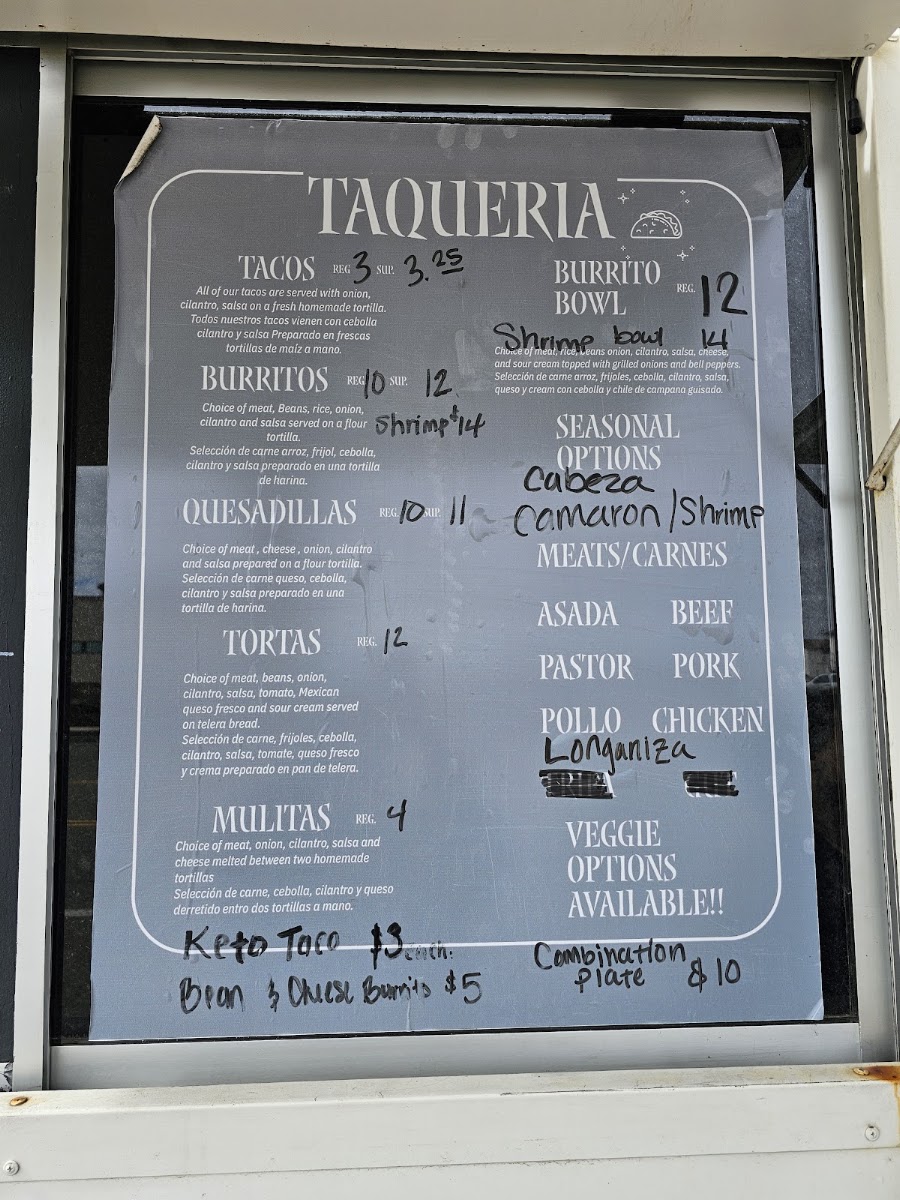 TAQUERIA
TACOS REG 3 SUP. 3.25
All of our tacos are served with onion,
cilantro, salsa on a fresh homemade tortilla.
Todos nuestros tacos vienen con cebolla
cilantro y salsa Preparado en frescas
tortillas de maíz a mano.
BURRITOS REG 10 SUP. 12
Shrimp $14
Choice of meat, Beans, rice, onion,
cilantro and salsa served on a flour
tortilla.
Selección de carne arroz, frijol, cebolla,
cilantro y salsa preparado en una tortilla
de harina.
QUESADILLAS REG. 10 SUP. 11
Choice of meat , cheese , onion, cilantro
and salsa prepared on a flour tortilla.
Selección de carne queso, cebolla,
cilantro y salsa preparado en una
tortilla de harina.
TORTAS REG. 12
Choice of meat, beans, onion,
cilantro, salsa, tomato, Mexican
queso fresco and sour cream served
on telera bread.
Selección de carne, frijoles, cebolla,
cilantro, salsa, tomate, queso fresco
y crema preparado en pan de telera.
MULITAS REG. 4
Choice of meat, onion, cilantro, salsa and
cheese melted between two homemade
tortillas
Selección de carne, cebolla, cilantro y queso
derretido entro dos tortillas a mano.
Keto Taco $3 each.
Bean & Cheese Burrito $5
BURRITO
BOWL REG. 12
Shrimp bowl 14
Choice of meat, rice, beans onion, cilantro, salsa, cheese,
and sour cream topped with grilled onions and bell peppers.
Selección de carne arroz, frijoles, cebolla, cilantro, salsa,
queso y cream con cebolla y chile de campana guisado.
SEASONAL
OPTIONS
Cabeza
Camaron/Shrimp
MEATS/CARNES
ASADA BEEF
PASTOR PORK
POLLO CHICKEN
Longaniza
VEGGIE
OPTIONS
AVAILABLE!!
Combination
Plate $10